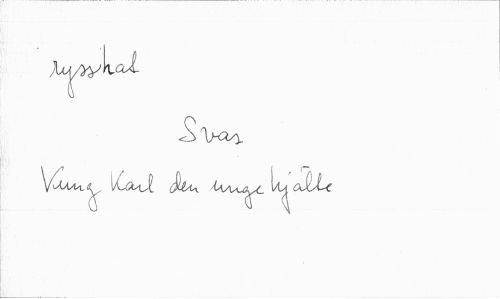 rysshat
Svar
Kung Karl den unge hjälte